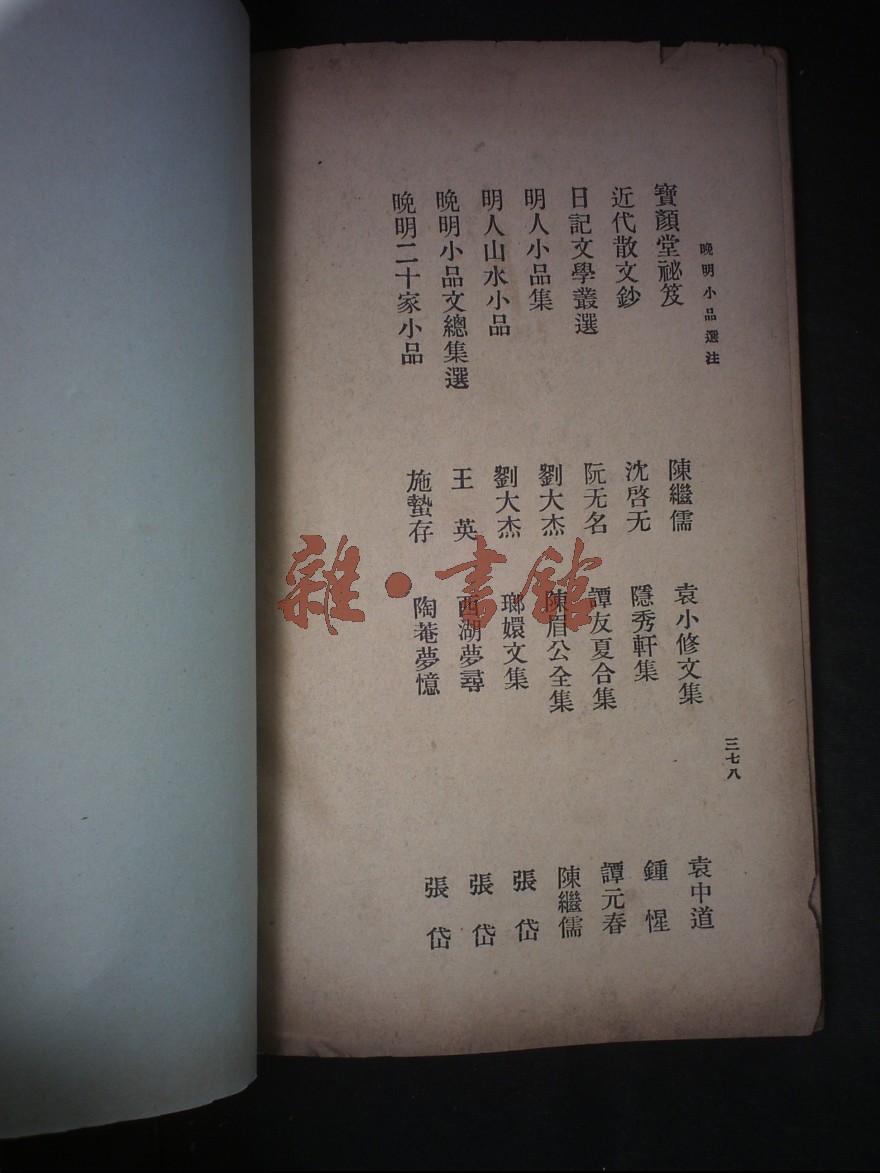 晚明小品選注
寶顏堂祕笈
陳繼儒
近代散文鈔
沈啓无
日記文學叢選
阮无名
明人小品集
劉大杰
明人山水小品
劉大杰
晚明小品文總集選
王英
晚明二十家小品
施蟄存
袁小修文集
袁中道
隱秀軒集
鍾惺
譚友夏合集
譚元春
陳眉公全集
陳繼儒
瑯嬛文集
張岱
西湖夢尋
張岱
陶菴夢憶
張岱
三七八
雜·書館